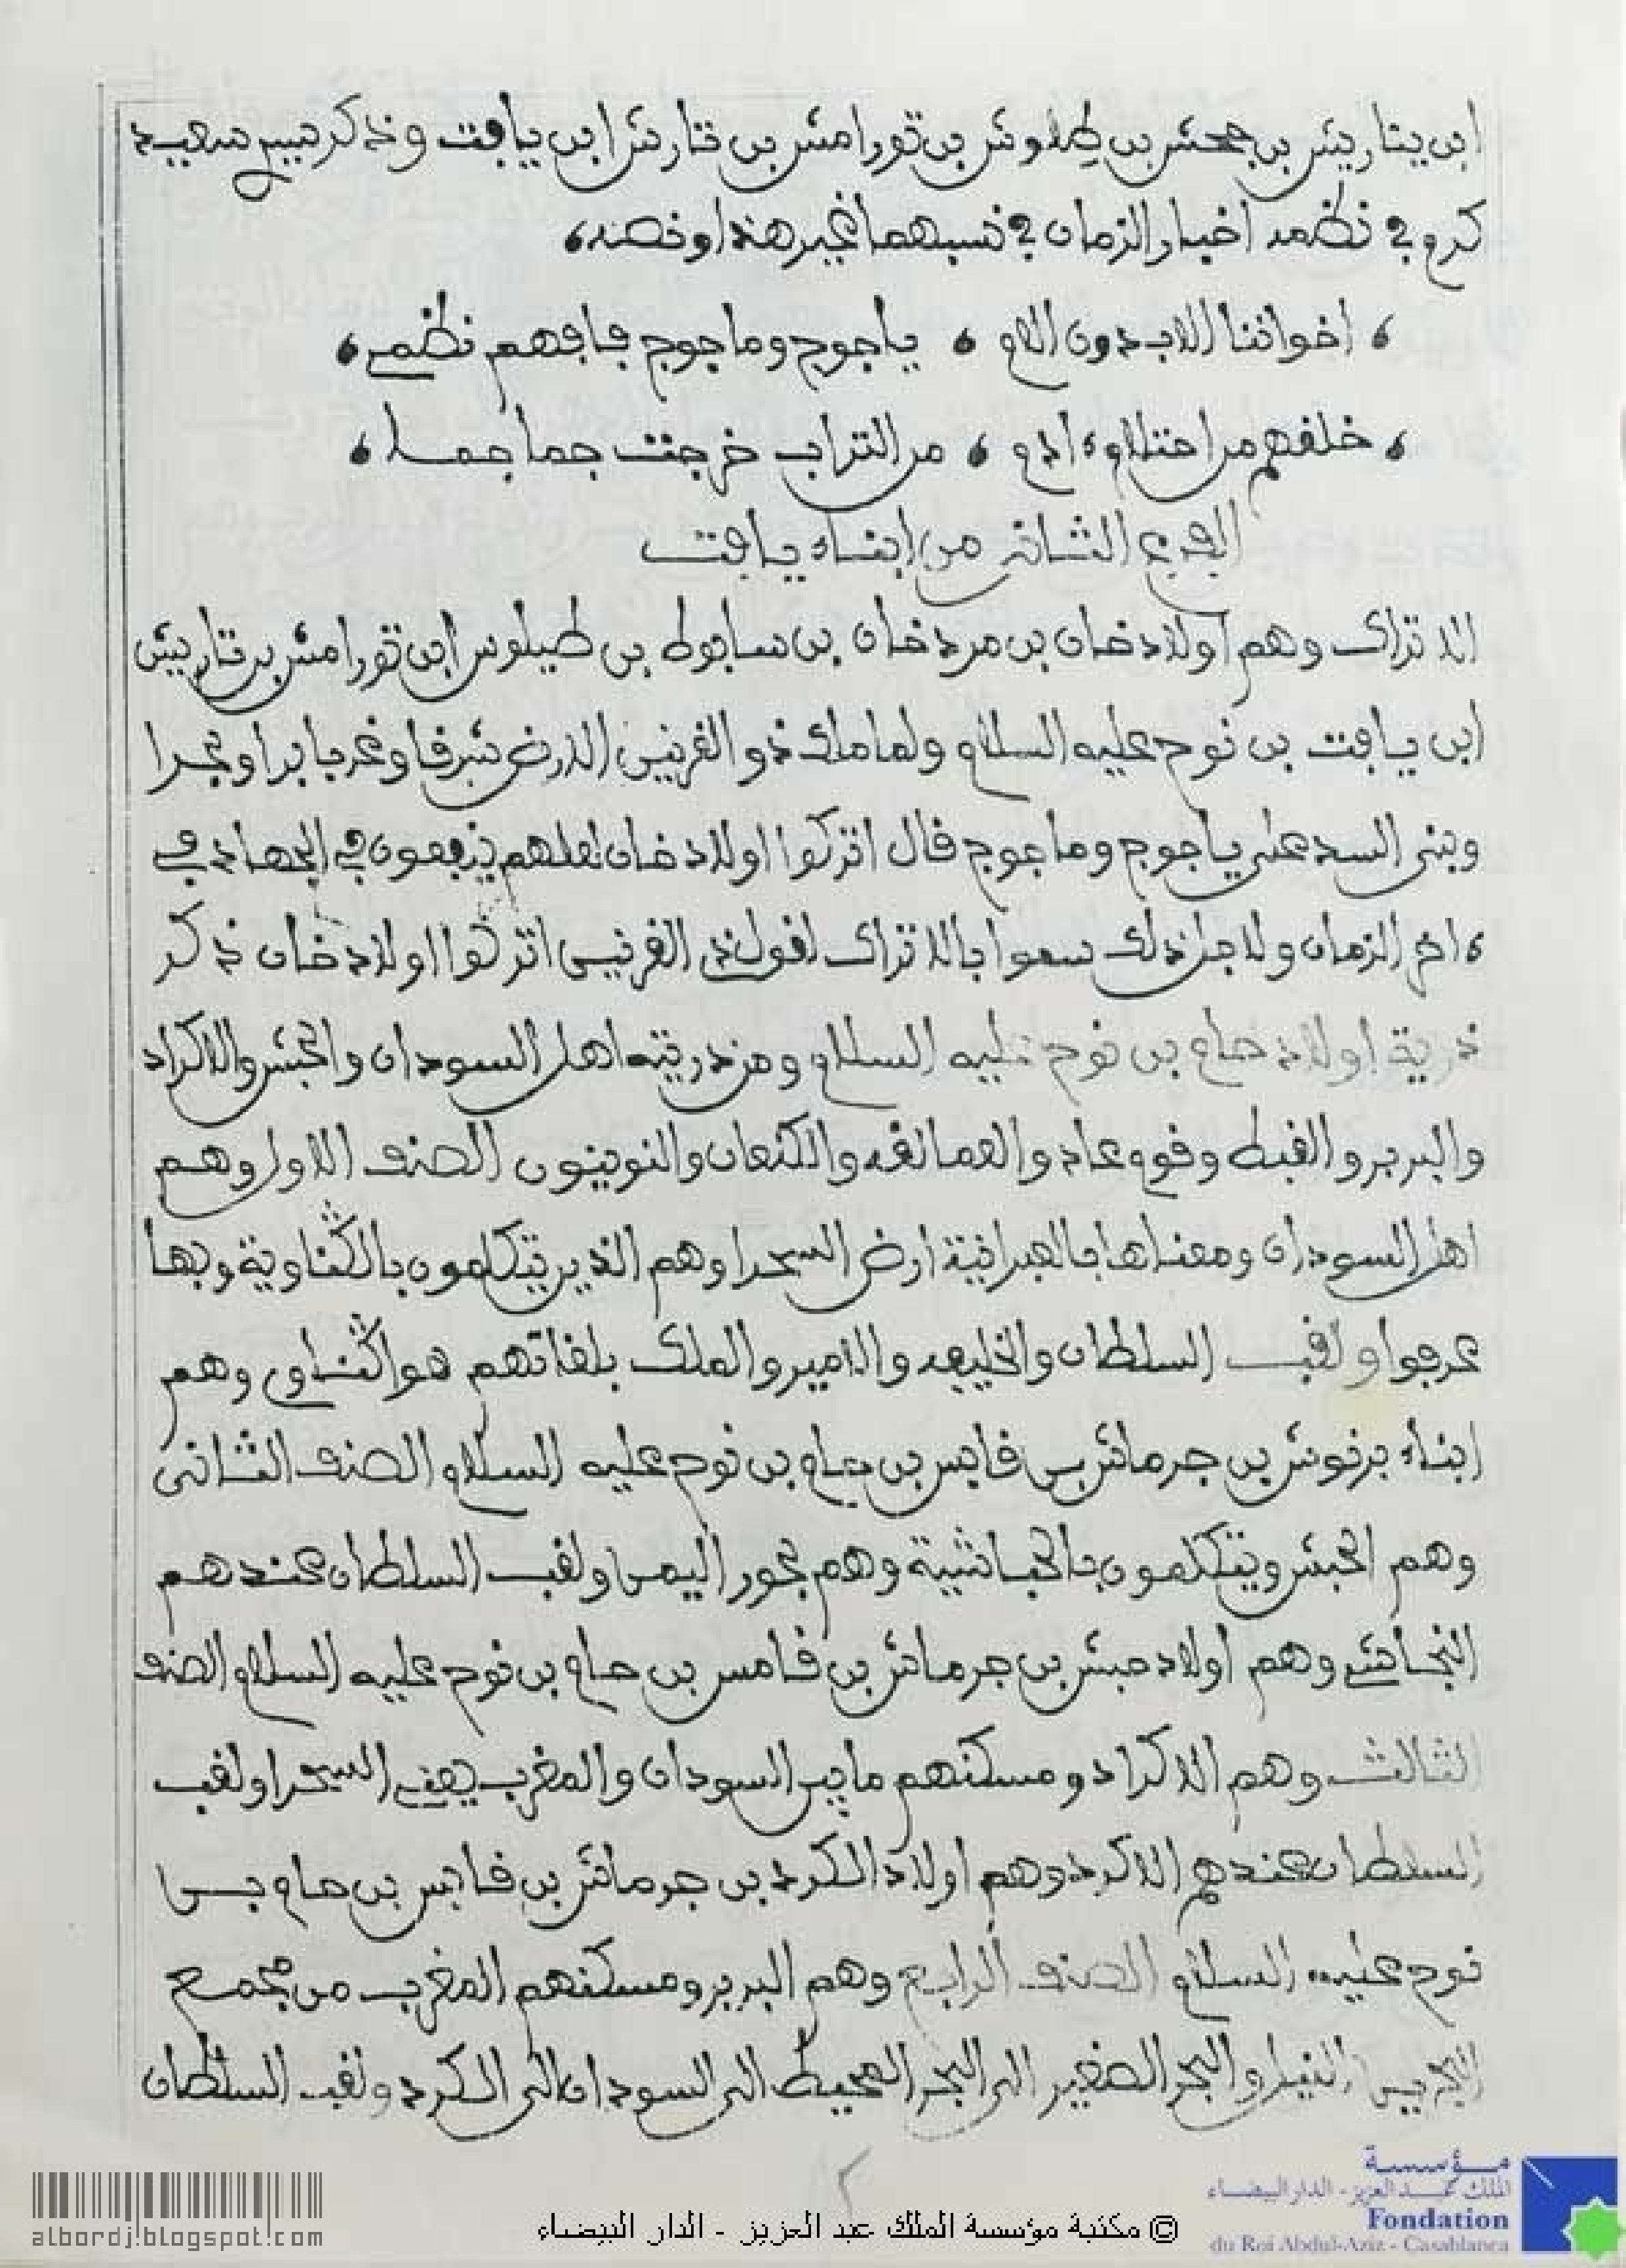 ابن يناريش بن جحش بن طيلوش بن تورامش بن تارش ابن يافت وذكر سعيد
كرم في نظمه اخبار الزمان في نسبهما غير هذا ونصه،
، اخواتنا للاب دون الام ، ياجوج وماجوج فافهم نظمي ،
، خلقهم من احتلام ءادم ، من التراب خرجت جماجما ،
الفرع الثاني من ابناء يافت
الاتراك وهم اولاد خان بن مردخان بن سابوط بن طيلوس ابن تورامش بن تاريش
ابن يافت بن نوح عليه السلام ولما ملك ذو القرنين الارض شرفا وغربا برا وبحرا
وبنى السد على ياجوج وماجوج قال اتركوا اولاد خان لعلهم ينفعون في الجهاد في
ءاخر الزمان ولاجل ذلك سموا بالاتراك لقول ذي القرنين اتركوا اولاد خان ذكر
ذرية اولاد حام بن نوح عليه السلام ومن ذريته اهل السودان والحبش والاكراد
والبربر والقبط وقوم عاد والعمالقه والكنعان والنوبيون الصنف الاول وهم
اهل السودان ومعناها بالعبرانية ارض السحرا وهم الذين يتكلمون بالڭناوية وبها
عرفوا ولقب السلطان والخليفه والامير والملك بلغاتهم هو اڭناوي وهم
ابناء برنوش بن جرمانش بن قابس بن حام بن نوح عليه السلام الصنف الثاني
وهم الحبش ويتكلمون بالحباشية وهم بحور اليمن ولقب السلطان عندهم
النجاشي وهم اولاد حبش بن جرمانش بن قامس بن حام بن نوح عليه السلام الصنف
الثالث وهم الاكراد ومسكنهم ما بين السودان والمغرب يعني السحرا ولقب
السلطان عندهم الاكرد وهم اولاد الكرد بن جرمانش بن قابس بن حام بن
نوح عليه السلام الصنف الرابع وهم البربر ومسكنهم المغرب من مجمع
البحرين النيل والبحر الصغير الى البحر المحيط الى السودان الى الكرد ولقب السلطان
٢
© مكتبة مؤسسة الملك عبد العزيز - الدار البيضاء
albordj.blogspot.com
مؤسسة
الملك عبد العزيز - الدار البيضاء
Fondation
du Roi Abdul-Aziz - Casablanca